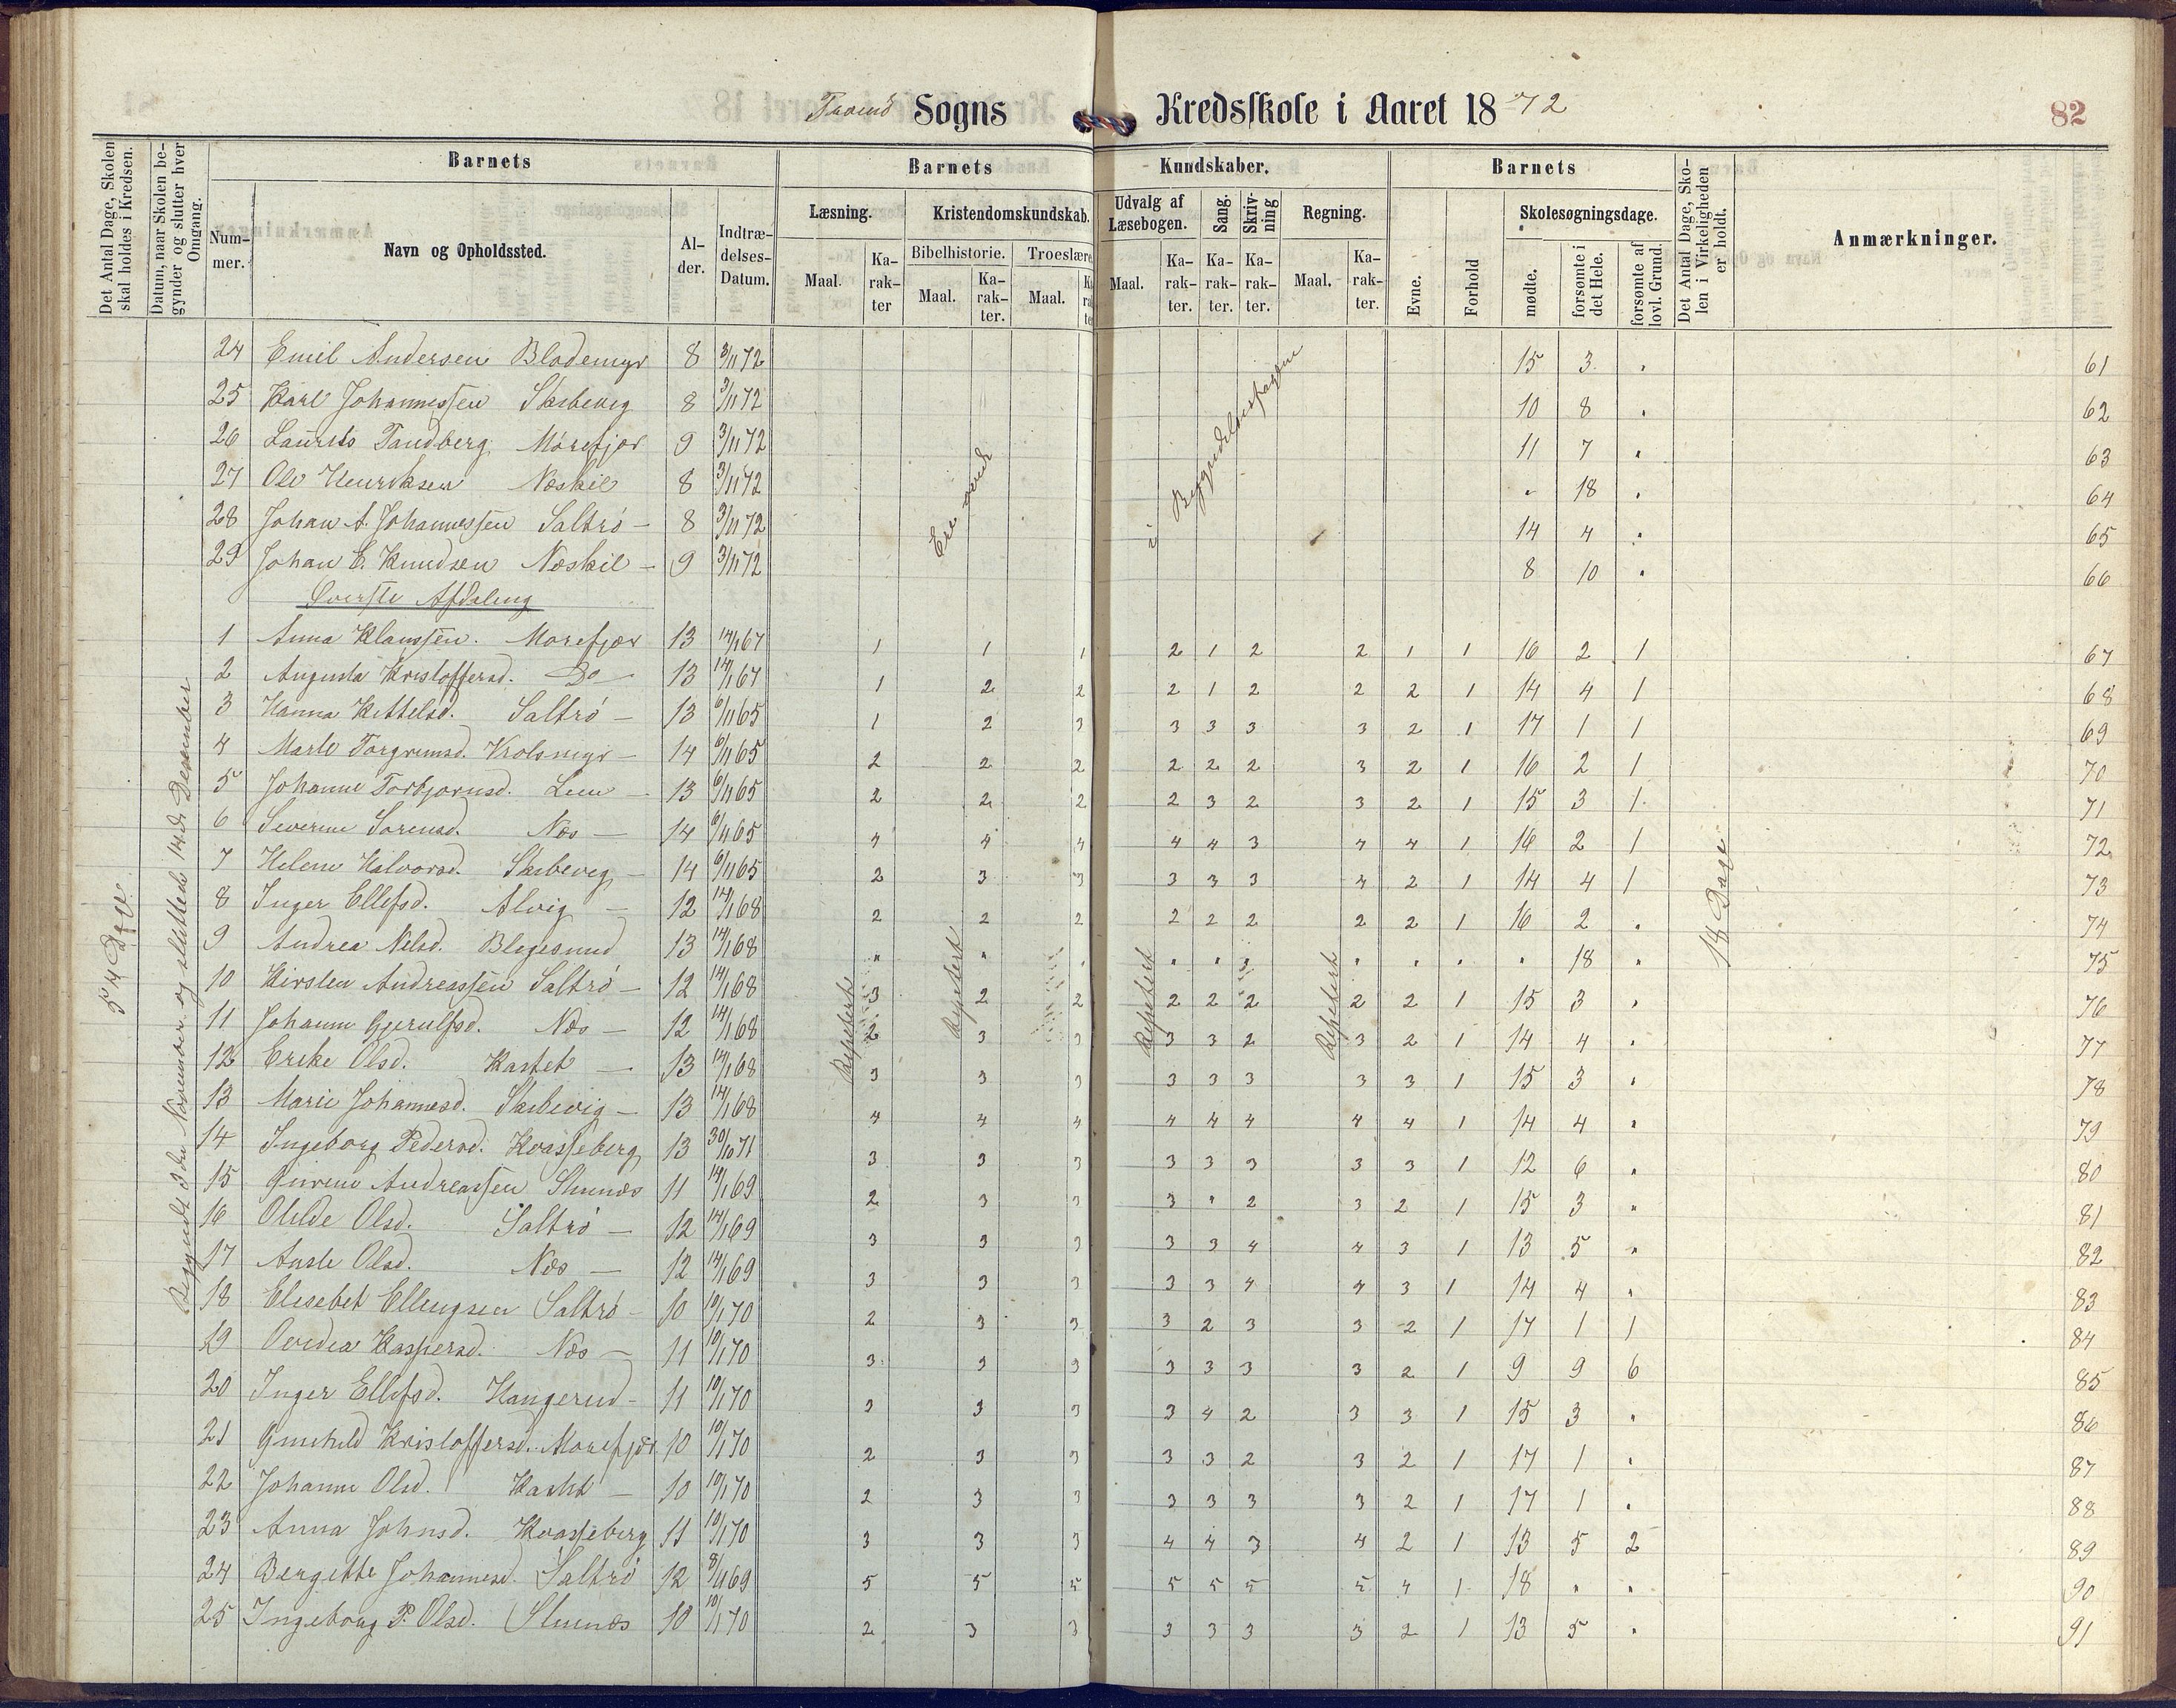 Sogns Kredsskole i Aaret 1872 82
Det Antal Dage, Skolen skal holdes i Kredsen.
Datum, naar Skolen begynder og slutter hver Omgang.
Barnets
Nummer.
Navn og Opholdssted.
Alder.
Indtrædelses-Datum.
Barnets Kundskaber.
Læsning.
Maal. Karakter
Kristendomskundskab.
Bibelhistorie. Maal. Karakter.
Troeslære Maal.
Udvalg af Læsebogen. Maal. Karakter.
Sang. Karakter.
Skrivning Karakter.
Regning. Maal. Karakter.
Barnets
Evne.
Forhold
Skolesøgningsdage.
mødte.
forsømte i det Hele.
forsømte af lovl. Grund.
Det Antal Dage, Skolen i Virkeligheden er holdt.
Anmærkninger.
54 Dage
Begyndt 3die November og sluttede 14de December
Ere øvede i Begyndelsesstagene
24 Emil Andersen Blodemyr 8 3/11 72 15 3 " 61
25 Karl Johannessen Skibevig 8 3/11 72 10 8 " 62
26 Laurits Tandberg Mórefjær 9 3/11 72 11 7 " 63
27 Ole Henriksen Næskil 8 3/11 72 " 18 " 64
28 Johan A. Johannessen Saltró 8 3/11 72 14 4 " 65
29 Johan E. Knudsen Næskil 9 3/11 72 8 10 " 66
Øverste Afdeling
1 Anna Klaussen. Morefjær 13 14/1 67 1 1 1 2 1 2 2 1 1 16 2 1 67
2 Augusta Kristoffersd. Do 13 14/1 67 1 2 2 2 1 2 2 2 1 14 4 1 68
3 Hanna Kittelsd. Saltró 13 6/11 65 1 2 3 3 3 3 3 2 1 17 1 1 69
4 Marte Torgrimsd. Krolsmyr 14 6/11 65 2 2 2 2 2 2 3 2 1 16 2 1 70
5 Johanne Torbjørnsd. Leen 13 6/11 65 2 2 2 2 3 2 3 2 1 15 3 1 71
6 Severine Sorensd. Næs 14 6/11 65 4 4 4 4 4 3 4 4 1 16 2 1 72
7 Helene Halvorsd. Skibevig 14 6/11 65 2 3 3 3 3 3 4 2 1 14 4 1 73
8 Inger Ellefsd. Alvig 12 14/1 68 2 2 2 2 2 2 2 2 1 16 2 " 74
9 Andrea Nilsd. Blegesund 13 14/1 68 " " " " " " " " " " 18 " 75
10 Kirsten Andreassen Saltró 12 14/1 68 3 2 2 2 2 2 2 2 1 15 3 " 76
11 Johanne Gjerulfsd. Næs 12 14/1 68 2 3 3 3 3 2 3 2 1 14 4 " 77
12 Ericke Olsd. Kastet 13 14/1 68 3 3 3 3 3 3 3 3 1 15 3 " 78
13 Marie Johannesd. Skibevig 13 14/1 68 4 4 4 4 4 4 4 4 1 14 4 " 79
14 Ingeborg Pedersd. Kvasseberg 13 30/10 71 3 3 3 3 3 3 3 3 1 12 6 " 80
15 Andreassen Slunæs 11 14/1 69 2 3 3 3 " 2 3 2 1 15 3 " 81
16 Olilde Olsd. Saltró 12 14/1 69 3 3 3 3 3 4 4 3 1 13 5 " 82
17 Aasle Olsd. Næs 12 14/1 69 3 3 3 3 3 4 4 3 1 14 4 " 83
18 Elisebet Ellingsen Saltró 10 10/1 70 2 3 3 3 2 3 3 2 1 17 1 1 84
19 Ovedia Kaspersd. Næs 11 10/1 70 3 3 3 3 3 3 3 2 1 9 9 6 85
20 Inger Ellefsd. Hangerud 11 10/1 70 3 3 3 3 4 2 3 3 1 15 3 " 86
21 Gunhild Kristoffersd. Morefjær 10 10/1 70 2 3 3 3 3 2 3 2 1 17 1 " 87
22 Johanne Olsd. Kastet 10 10/1 70 2 3 3 3 3 3 3 2 1 17 1 " 88
23 Anna Johnsd. Kvasseberg 11 10/1 70 3 3 3 4 4 3 4 2 1 13 5 2 89
24 Bergitte Johannesd. Saltró 12 8/11 69 5 5 5 5 5 5 5 4 1 18 " " 90
25 Ingeborg P. Olsd. Slunæs 10 10/1 70 2 3 3 3 3 3 3 2 1 13 5 " 91
Repetert
Repetert
Repetert
Repetert
18 Dage